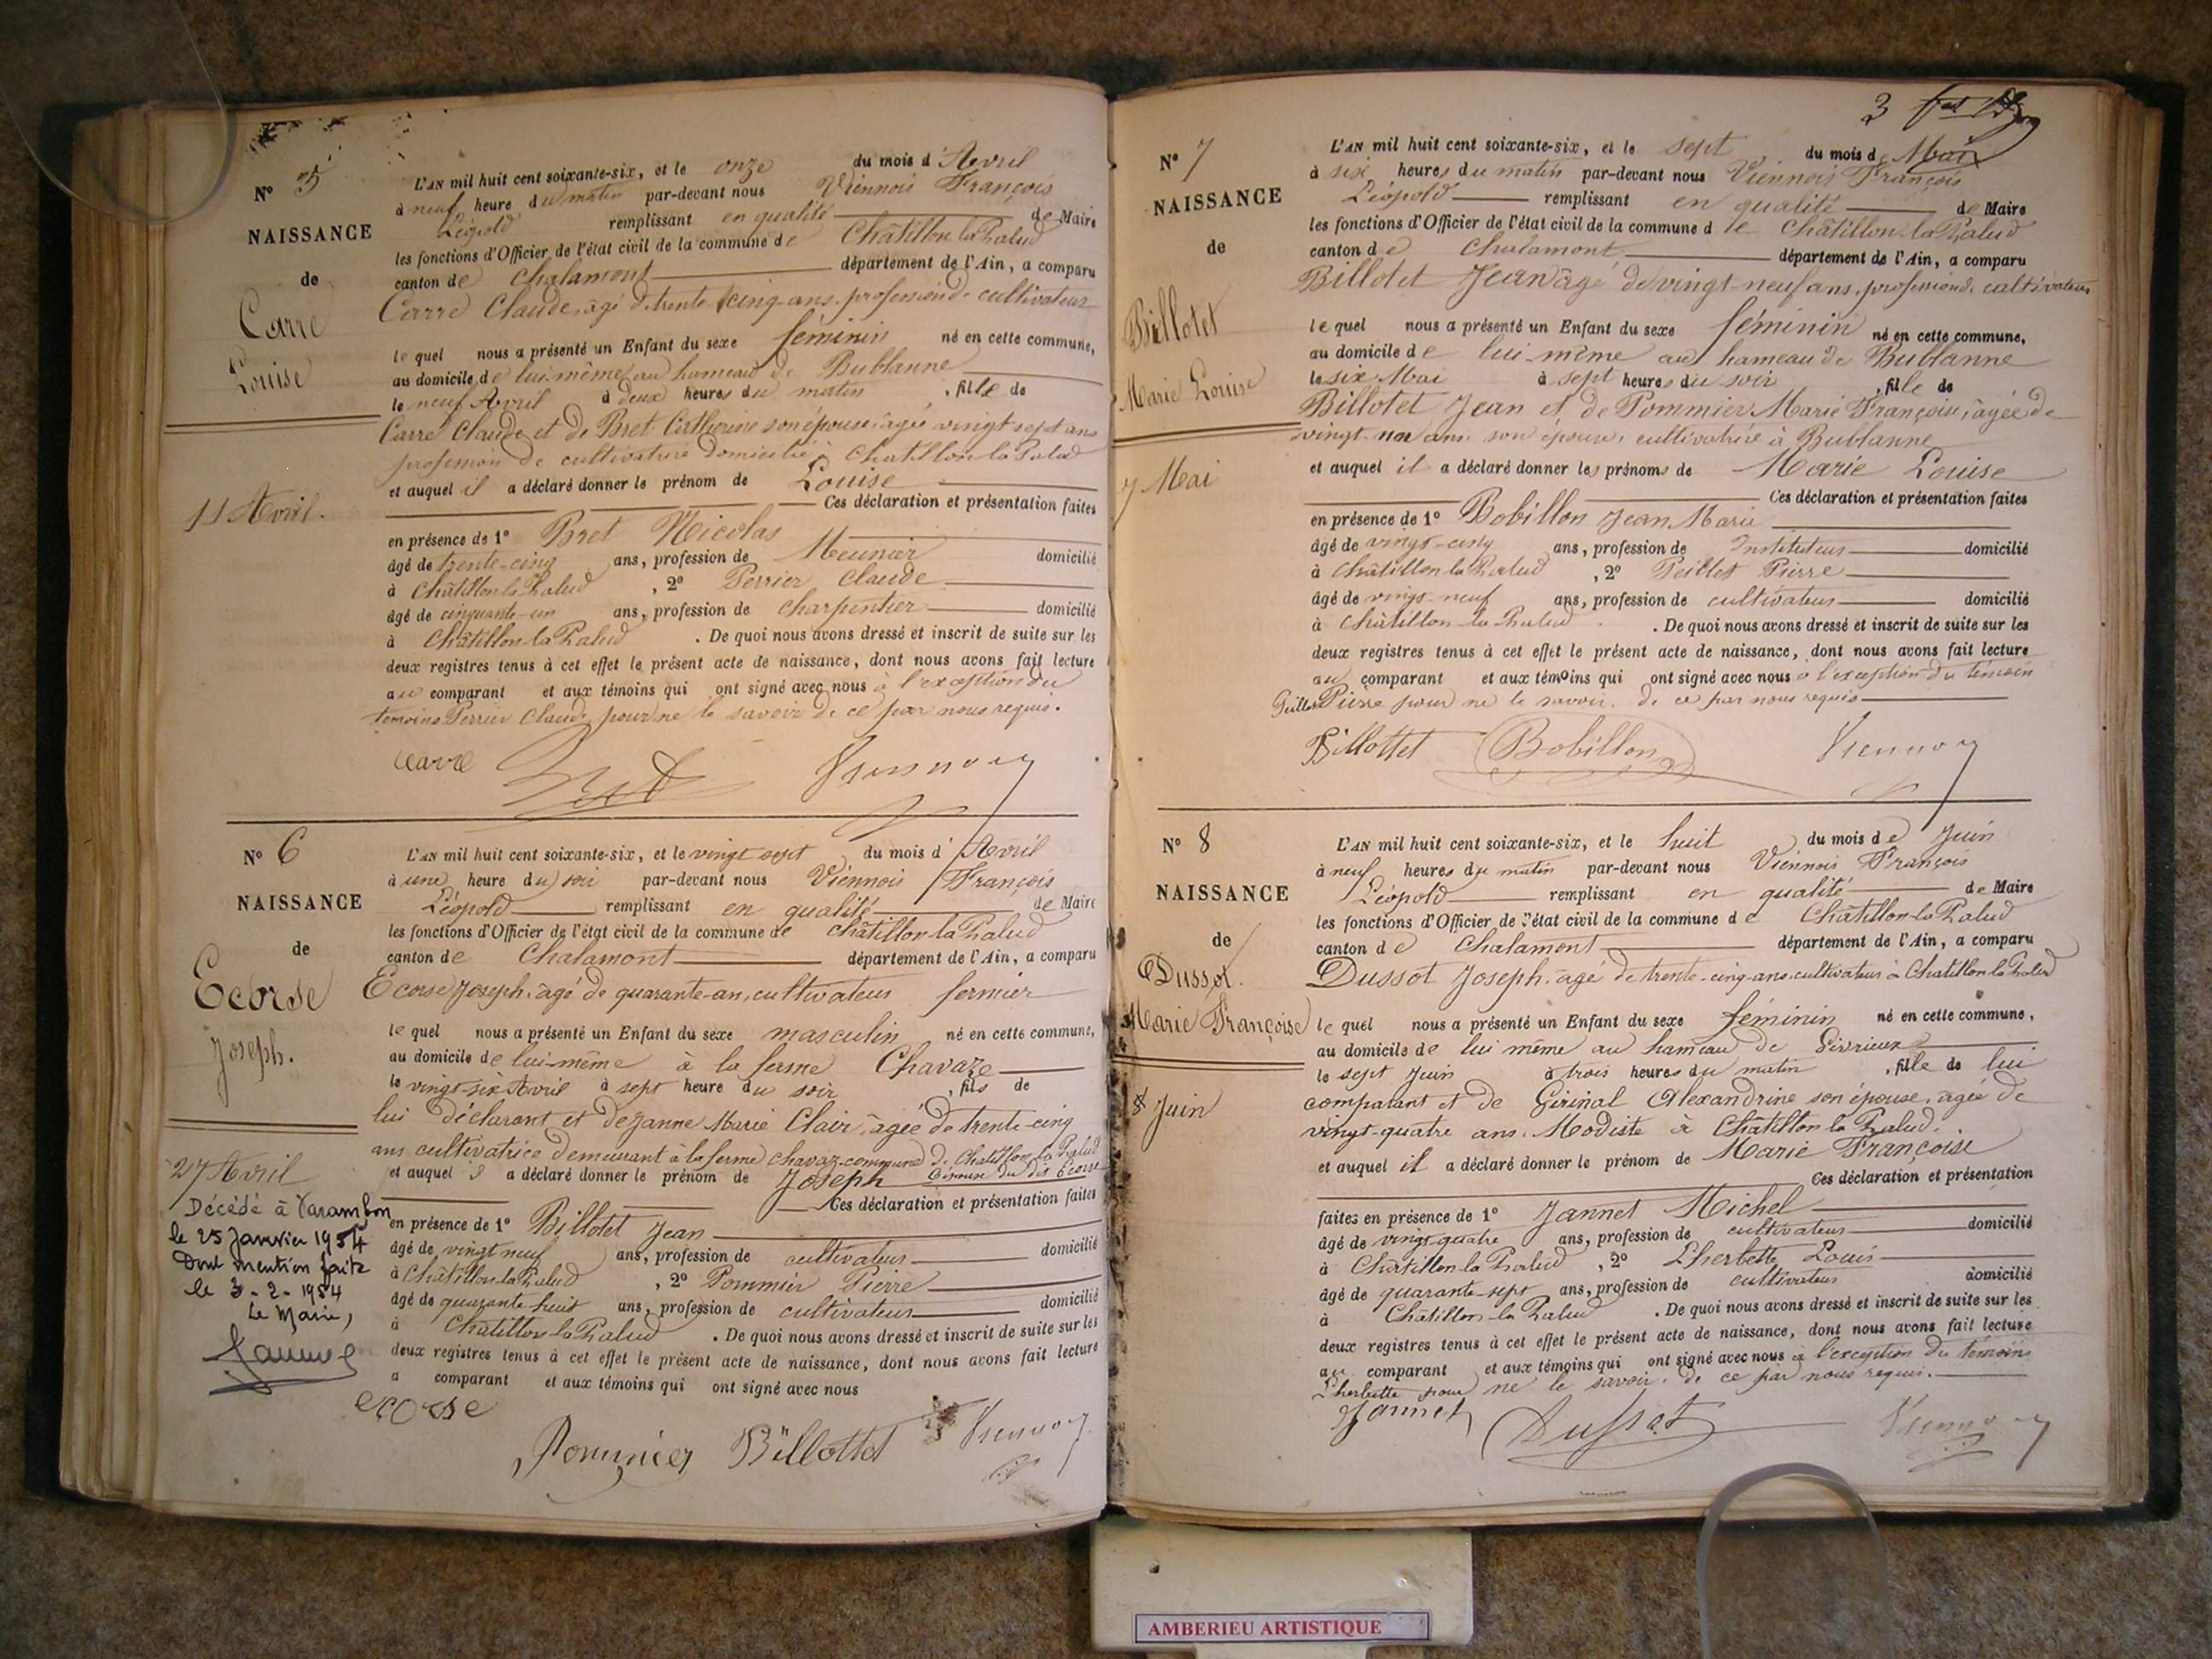 N° 5
NAISSANCE
de
Carre
Louise
11 Avril.
L'AN mil huit cent soixante-six, et le onze du mois d'Avril
à neuf heure du matin par-devant nous Viennois François
Léopold remplissant en qualité de Maire
les fonctions d'Officier de l'état civil de la commune de Châtillon la Palud
canton de Chalamont département de l'Ain, a comparu
Carre Claude, âgé de trente cinq ans, profession de cultivateur
lequel nous a présenté un Enfant du sexe féminin né en cette commune,
au domicile de lui-même au hameau de Bublanne
le neuf Avril à deux heures du matin, fille de
Carre Claude et de Bret Catherine son épouse, âgée vingt sept ans
profession de cultivatrice domicilié à Chatillon la Palud
et auquel il a déclaré donner le prénom de Louise
Ces déclaration et présentation faites
en présence de 1° Bret Nicolas
âgé de trente-cinq ans, profession de Meunier domicilié
à Châtillon la Palud, 2° Perrier Claude
âgé de cinquante-un ans, profession de charpentier domicilié
à Châtillon-la Palud. De quoi nous avons dressé et inscrit de suite sur les
deux registres tenus à cet effet le présent acte de naissance, dont nous avons fait lecture
au comparant et aux témoins qui ont signé avec nous à l'exception du
témoins Perrier Claude, pour ne le savoir de ce par nous requis.
Carre Bret Viennois
N° 6
NAISSANCE
de
Ecorse
Joseph.
27 Avril
Décédé à Varambon
le 25 Janvier 1954
Dont mention faite
le 3-2-1954
Le Maire,
L'AN mil huit cent soixante-six, et le vingt sept du mois d'Avril
à une heure du soir par-devant nous Viennois François
Léopold remplissant en qualité de Maire
les fonctions d'Officier de l'état civil de la commune de Châtillon-la Palud
canton de Chalamont département de l'Ain, a comparu
Ecorse Joseph, âgé de quarante-un, cultivateur fermier
lequel nous a présenté un Enfant du sexe masculin né en cette commune,
au domicile de lui-même à la ferme Chavaze
le vingt-six Avril à sept heure du soir, fils de
lui déclarant et de Marie Clair, âgée de trente-cinq
ans cultivatrice demeurant à la ferme chavaz commune de Chatillon la Palud
et auquel il a déclaré donner le prénom de Joseph Epouse du dit Ecorse
Ces déclaration et présentation faites
en présence de 1° Billotet Jean
âgé de vingt neuf ans, profession de cultivateur domicilié
à Châtillon la Palud, 2° Pommier Pierre
âgé de quarante huit ans, profession de cultivateur domicilié
à Châtillon la Palud. De quoi nous avons dressé et inscrit de suite sur les
deux registres tenus à cet effet le présent acte de naissance, dont nous avons fait lecture
a comparant et aux témoins qui ont signé avec nous
ecorse
Pommier Billottet Viennois
3
N° 7
NAISSANCE
de
Billotet
Marie Louise
7 Mai
L'AN mil huit cent soixante-six, et le sept du mois de Mai
à six heures du matin par-devant nous Viennois François
Léopold remplissant en qualité de Maire
les fonctions d'Officier de l'état civil de la commune d le Châtillon-la Palud
canton de Chalamont département de l'Ain, a comparu
Billotet Jean âgé de vingt-neuf ans, profession de cultivateur
lequel nous a présenté un Enfant du sexe féminin né en cette commune,
au domicile de lui-même au hameau de Bublanne
le six Mai à sept heures du soir, fille de
Billotet Jean et de Pommier Marie Françoise, âgée de
vingt-un ans son épouse, cultivatrice à Bublanne
et auquel il a déclaré donner les prénoms de Marie Louise
Ces déclaration et présentation faites
en présence de 1° Bobillon Jean Marie
âgé de vingt-cinq ans, profession de Instituteur domicilié
à Châtillon-la Palud, 2° Peillet Pierre
âgé de vingt-neuf ans, profession de cultivateur domicilié
à Châtillon-la Palud. De quoi nous avons dressé et inscrit de suite sur les
deux registres tenus à cet effet le présent acte de naissance, dont nous avons fait lecture
au comparant et aux témoins qui ont signé avec nous à l'exception du témoin
Peillet Pierre pour ne le savoir. de ce par nous requis
Billottet Bobillon Viennois
N° 8
NAISSANCE
de
Dussot.
Marie Françoise
8 Juin
L'AN mil huit cent soixante-six, et le huit du mois de Juin
à neuf heures du matin par-devant nous Viennois François
Léopold remplissant en qualité de Maire
les fonctions d'Officier de l'état civil de la commune de Châtillon-la Palud
canton de Chalamont département de l'Ain, a comparu
Dussot Joseph, âgé de trente-cinq ans cultivateur à Chatillon la Palud
lequel nous a présenté un Enfant du sexe féminin né en cette commune,
au domicile de lui même au hameau de Givrieux
le sept Juin à trois heures du matin, fille de lui
comparant et de Alexandrine son épouse, âgée de
vingt-quatre ans. Modiste à Châtillon la Palud.
et auquel il a déclaré donner le prénom de Marie Françoise
Ces déclaration et présentation
faites en présence de 1° Jannet Michel
âgé de vingt-quatre ans, profession de cultivateur domicilié
à Châtillon la Palud, 2° Lherbette Louis
âgé de quarante-sept ans, profession de cultivateur domicilié
à Châtillon-la Palud. De quoi nous avons dressé et inscrit de suite sur les
deux registres tenus à cet effet le présent acte de naissance, dont nous avons fait lecture
au comparant et aux témoins qui ont signé avec nous à l'exception du témoins
Lherbette pour ne le savoir. de ce par nous requis.
Jannet Dussot Viennois
AMBERIEU ARTISTIQUE